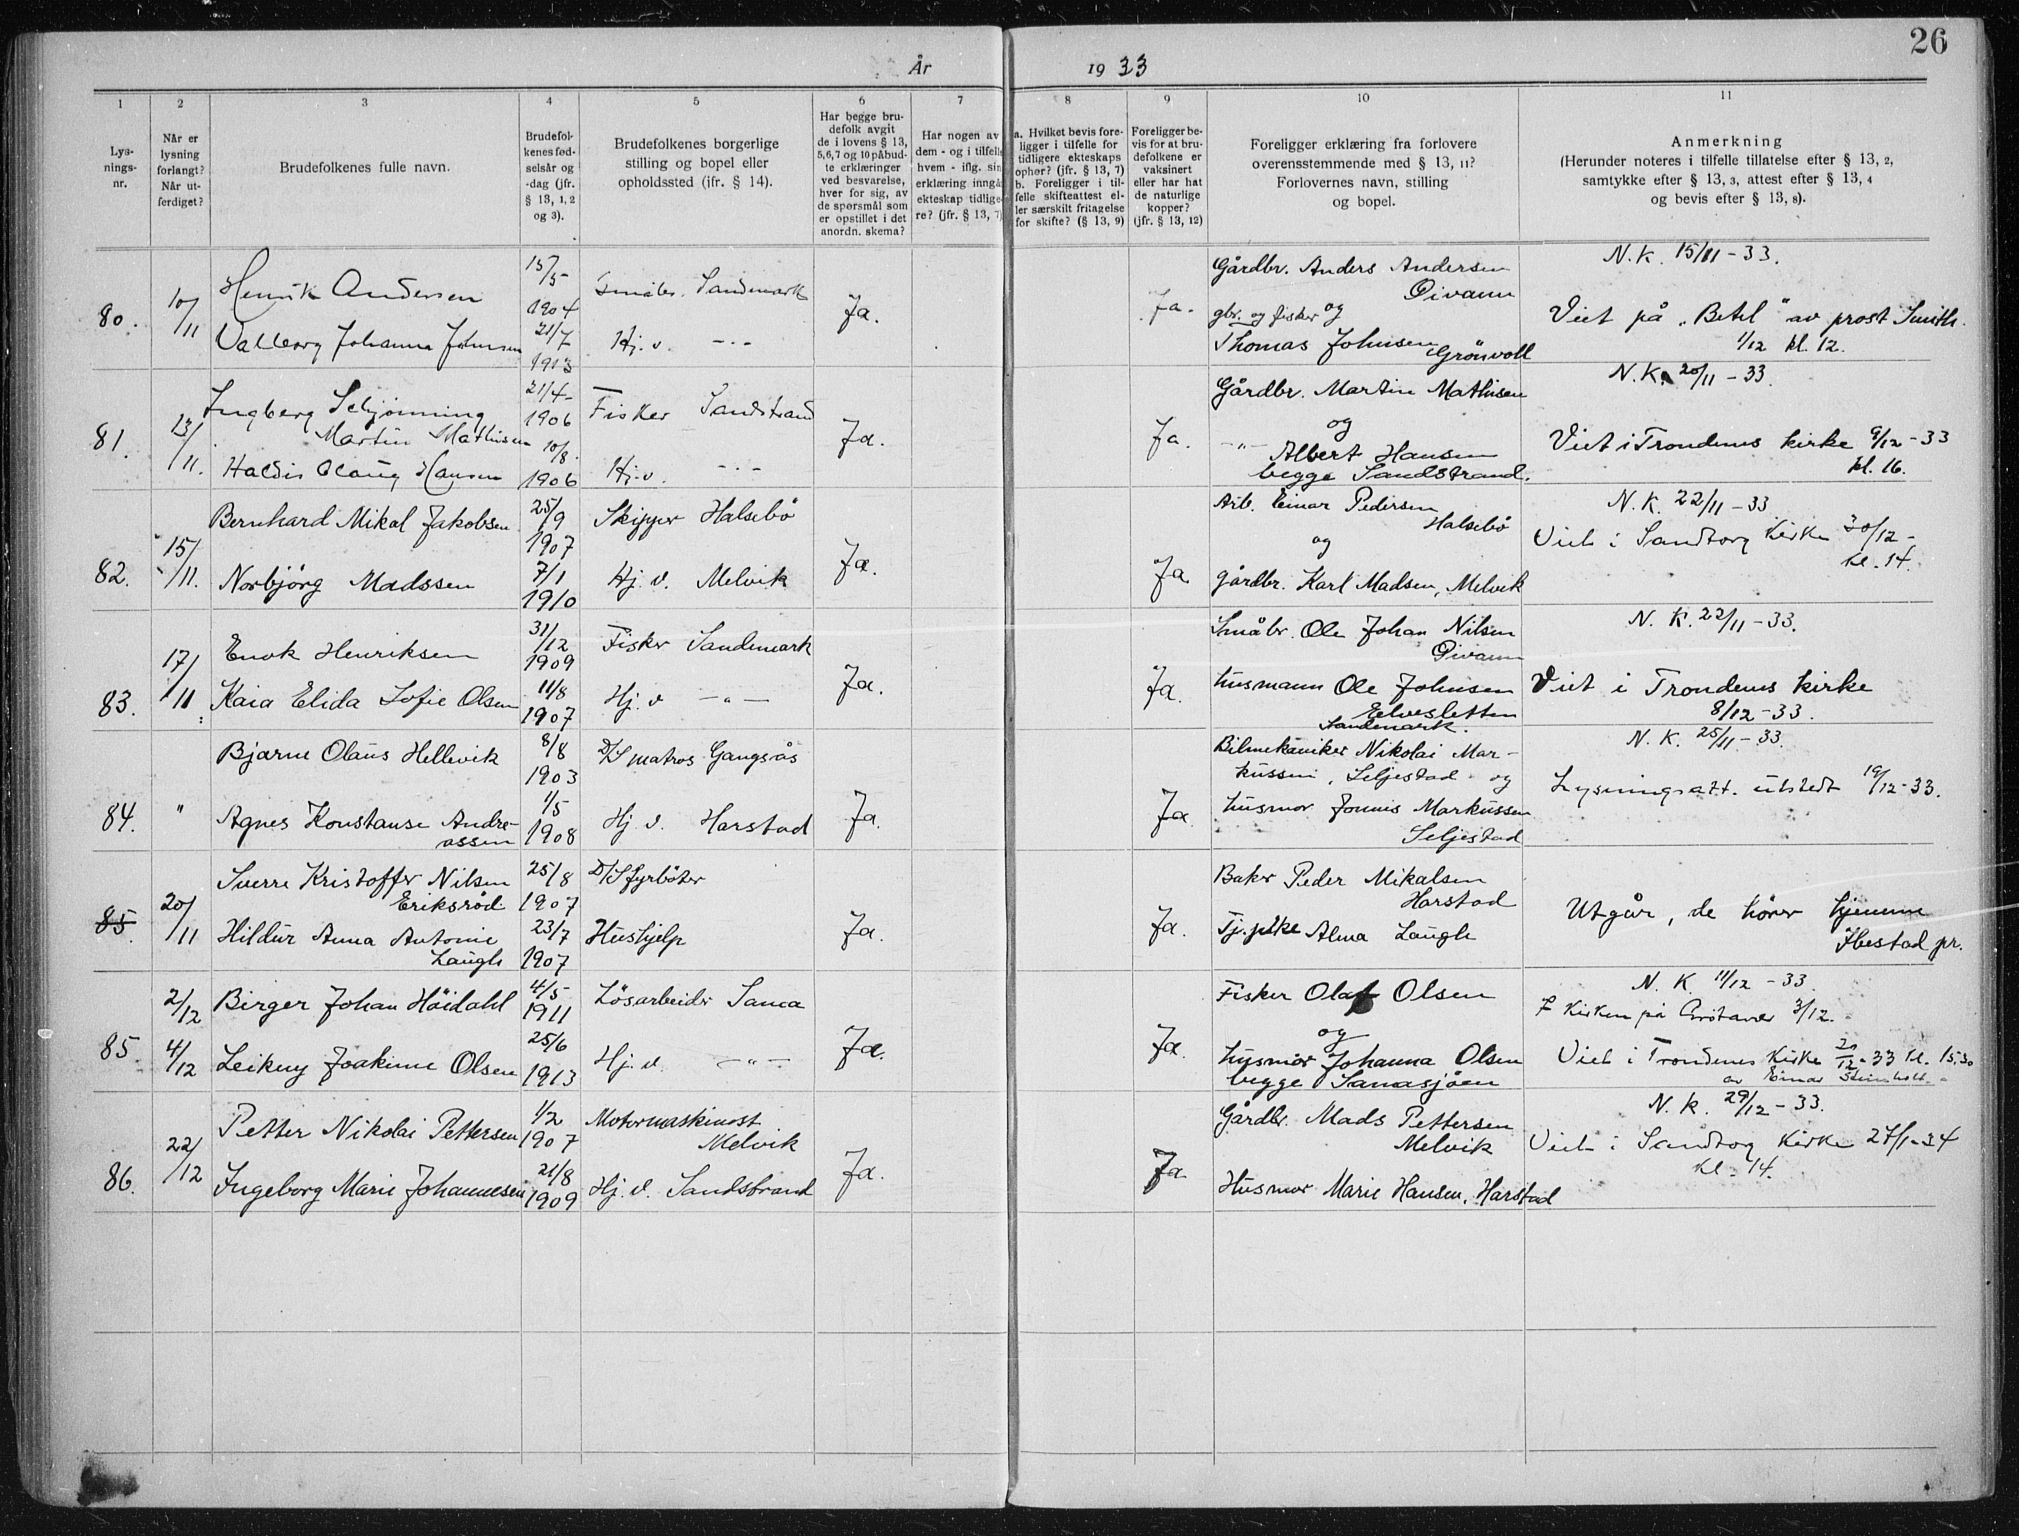 26
År 1933
1
2
3
4
5
6
7
8
9
10
11
Lys-
nings-
nr.
Når er
lysning
forlangt?
Når ut-
ferdiget?
Brudefolkenes fulle navn.
Brudefol-
kenes fød-
selsår og
-dag (jfr.
§ 13, 1, 2
og 3).
Brudefolkenes borgerlige
stilling og bopel eller
opholdssted (jfr. § 14).
Har begge bru-
defolk avgit
de i lovens § 13,
5,6,7 og 10 påbud-
te erklæringer
ved besvarelse,
hver for sig, av
de spørsmål som
er opstillet i det
anordn. skema?
Har nogen av
dem - og i tilfelle
hvem - iflg. sin
erklæring inngå
ekteskap tidlige-
re? (jfr. § 13, 7)
a. Hvilket bevis fore-
ligger i tilfelle for
tidligere ekteskaps
ophør? (jfr. § 13, 7)
b. Foreligger i til-
felle skifteattest el-
ler særskilt fritagelse
for skifte? (§ 13, 9)
Foreligger be-
vis for at bru-
defolkene er
vaksinert
eller har hat
de naturlige
kopper?
(jfr. § 13, 12)
Foreligger erklæring fra forlovere
overensstemmende med § 13, 11?
Forlovernes navn, stilling
og bopel.
Anmerkning
(Herunder noteres i tilfelle tillatelse efter § 13, 2,
samtykke efter § 13, 3, attest efter § 13, 4
og bevis efter § 13, 8).
80.
10/11
Henrik Andersen
15/5
1904
Småbr. Sandemark
Valborg Johanna Johnsen
21/7
1913
Hj. v. -"-
Ja.
Ja.
Gårdbr. Anders Andersen
og
gbr. og fisker
Thomas Johnsen
Grönvoll
N. K. 15/11 - 33.
Viet på "Betel" av prost Smith.
1/12 kl. 12.
81.
13/11.
Ingberg Schjønning
Martin Mathisen
21/4
1906
Fisker Sandstrand
Haldis Olaug Hansen
10/8.
1906
Hj. v. -"-
Ja.
Ja.
Gårdbr. Martin Mathisen
og
-"- Albert Hansen
begge Sandstrand.
N. K. 20/11 - 33.
Viet i Trondenes kirke 9/12 - 33
kl. 16.
82.
15/11.
Bernhard Mikal Jakobsen
25/9
1907
Skipper Halsebö
Norbjörg Madssen
7/1
1910
Hj. v. Melvik
Ja.
Ja
Arb. Einar Pedersen
Halsebö
og
gårdbr. Karl Madsen, Melvik
N. K. 22/11 - 33
Viet i Sandtorg Kirke 30/12 -
kl. 14.
83.
17/11
Enok Henriksen
31/12
1909
Fisker Sandemark
Kaia Elida Sofie Olsen
11/8
1907
Hj. v -"-
Ja.
Ja.
Småbr. Ole Johan Nilsen
husmann Ole Johnsen
Elvesletten
Sandemark.
N. K. 22/11 - 33.
Viet i Trondenes kirke
8/12 - 33.
84.
"
Bjarne Olaus Hellevik
8/8
1903
D/S matros Gangsås
Agnes Konstanse Andre-
assen
1/5
1908
Hj. v. Harstad
Ja.
Ja.
Bilmekaniker Nikolai Mar-
kussen, Seljestad og
husmor Jonnis Markussen
Seljestad
N. K. 25/11 - 33.
Lysningsatt. utstedt 19/12 - 33.
85.
20/11
Sverre Kristoffer Nilsen
Eriksröd
25/8
1907
D/S fyrböter
Hildur Anna Antonie
Laugle
23/7
1907
Hushjelp
Ja.
Ja.
Baker Peder Mikalsen
Harstad
Tj. pike Alma Laugle
Utgår, de hörer hjemme
Ibestad pr.
85.
2/12
4/12
Birger Johan Höidahl
4/5
1911
Lösarbeider Sama
Leikny Joakime Olsen
25/6
1913
Hj. v. -"-
Ja.
Ja.
Fisker Olaf Olsen
og
husmor Johanna Olsen
begge Samasjöen
N. K. 11/12 - 33.
F Kirken på Grötavær 3/12.
Viet i Trondenes Kirke 20/12 - 33 kl. 15.30
av Einar
86.
22/12
Petter Nikolai Pettersen
1/2
1907
Motormaskinist
Melvik
Ingeborg Marie Johannesen
21/8
1909
Hj. v. Sandstrand
Ja.
Ja.
Gårdbr. Mads Pettersen
Melvik
Husmor Marie Hansen, Harstad
N. K. 29/12 - 33.
Viet i Sandtorg Kirke 27/1 - 34
kl. 14.